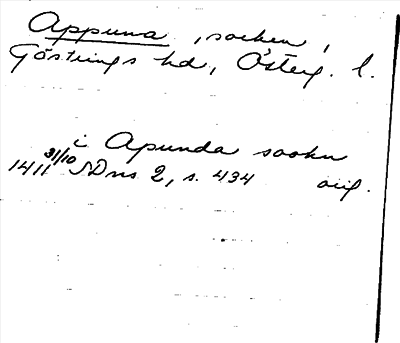 Appuna, socken,
Göstrings hd, Österg. l.
i Apunda sookn
1411 31/10 SDns 2, s. 434 orig.